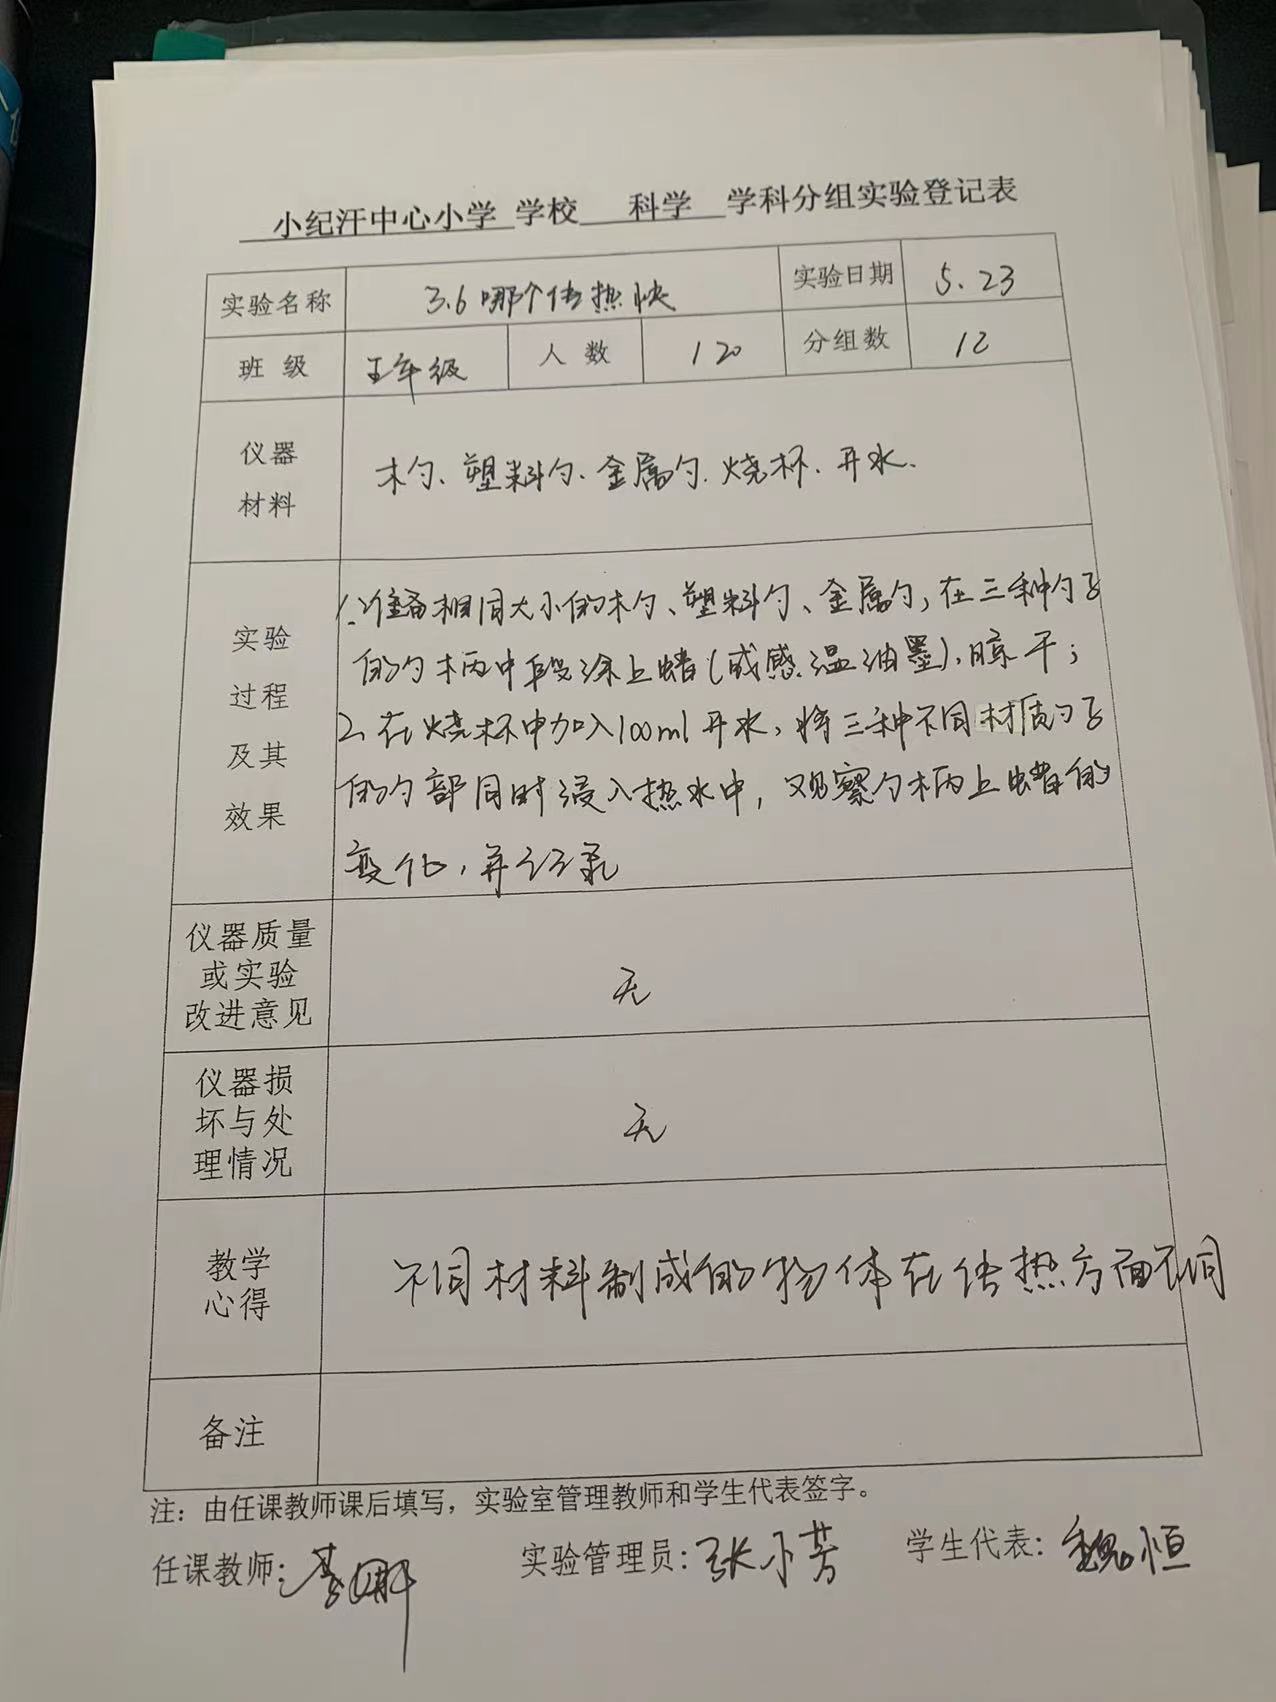 小纪汗中心小学 学校 科学 学科分组实验登记表
实验名称 3.6哪个传热快 实验日期 5.23
班级 五年级 人数 120 分组数 12
仪器
材料
木勺、塑料勺、金属勺、烧杯、开水.
实验
过程
及其
效果
1.准备相同大小的木勺、塑料勺、金属勺,在三种勺子
的勺柄中段涂上蜡(或感温油墨),晾干;
2.在烧杯中加入100ml开水,将三种不同材质勺子
的勺部同时浸入热水中,观察勺柄上蜡的
变化,并记录
仪器质量
或实验
改进意见
无
仪器损
坏与处
理情况
无
教学
心得
不同材料制成的物体在传热方面不同
备注
注:由任课教师课后填写,实验室管理教师和学生代表签字。
任课教师: 实验管理员:张小芳 学生代表:魏恒